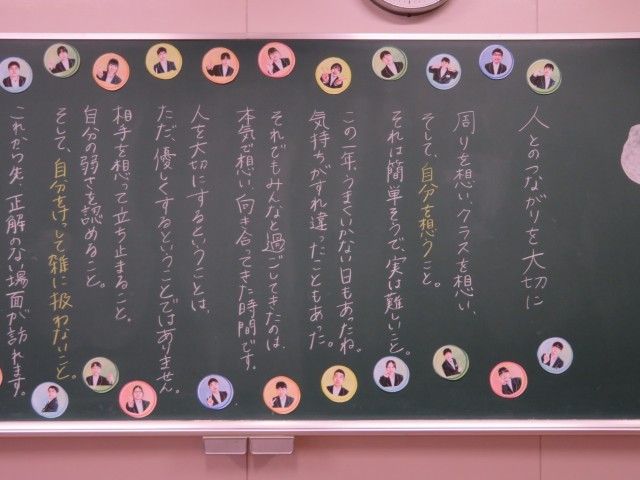 人とのつながりを大切に
周りを想い、クラスを想い、
そして、自分を想うこと。
それは簡単そうで、実は難しいこと。
この一年、うまくいかない日もあったね。
気持ちがすれ違ったこともあった。
それでもみんなと過ごしてきたのは、
本気で想い、向き合ってきた時間です。
人を大切にするということは、
ただ、優しくするということではありません。
相手を想って立ち止まること。
自分の弱さを認めること。
そして、自分をけっして雑に扱わないこと。
これから先、正解のない場面が訪れます。